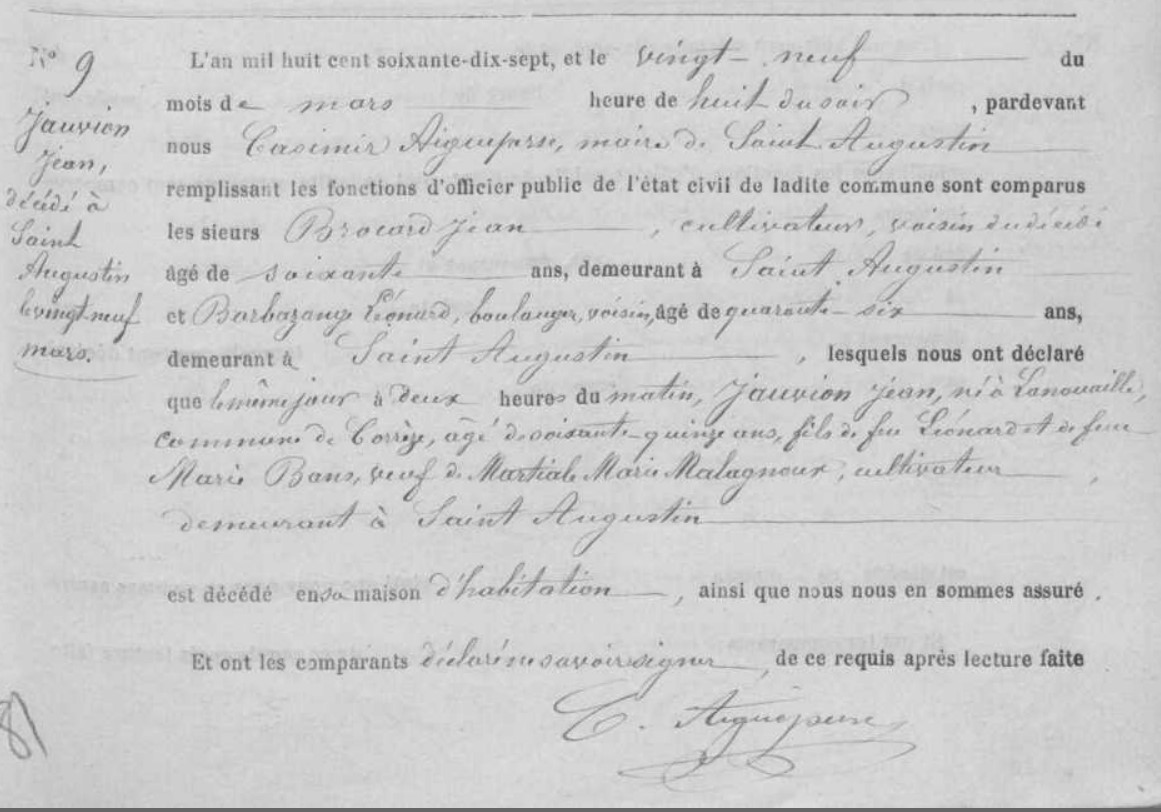 N° 9
Jauvion
Jean,
décédé à
Saint
Augustin
le vingt neuf
mars.
L'an mil huit cent soixante-dix-sept, et le vingt-neuf du
mois de mars heure de huit du soir, pardevant
nous Casimir Aigueperse, maire de Saint Augustin
remplissant les fonctions d'officier public de l'état civil de ladite commune sont comparus
les sieurs Brocard Jean, cultivateur, voisin du décédé
âgé de soixante ans, demeurant à Saint Augustin
et Barbazange Léonard, boulanger, voisin, âgé de quarante-six ans,
demeurant à Saint Augustin, lesquels nous ont déclaré
que le même jour à deux heures du matin, Jauvion Jean, né à Lanouaille,
commune de Corrèze, âgé de soixante-quinze ans, fils de feu Léonard et de feue
Marie Bans, veuf de Martiale Marie Malagnoux, cultivateur,
demeurant à Saint Augustin
est décédé en sa maison d'habitation, ainsi que nous nous en sommes assuré.
Et ont les comparants déclaré ne savoir signer, de ce requis après lecture faite
C. Aigueperse
81